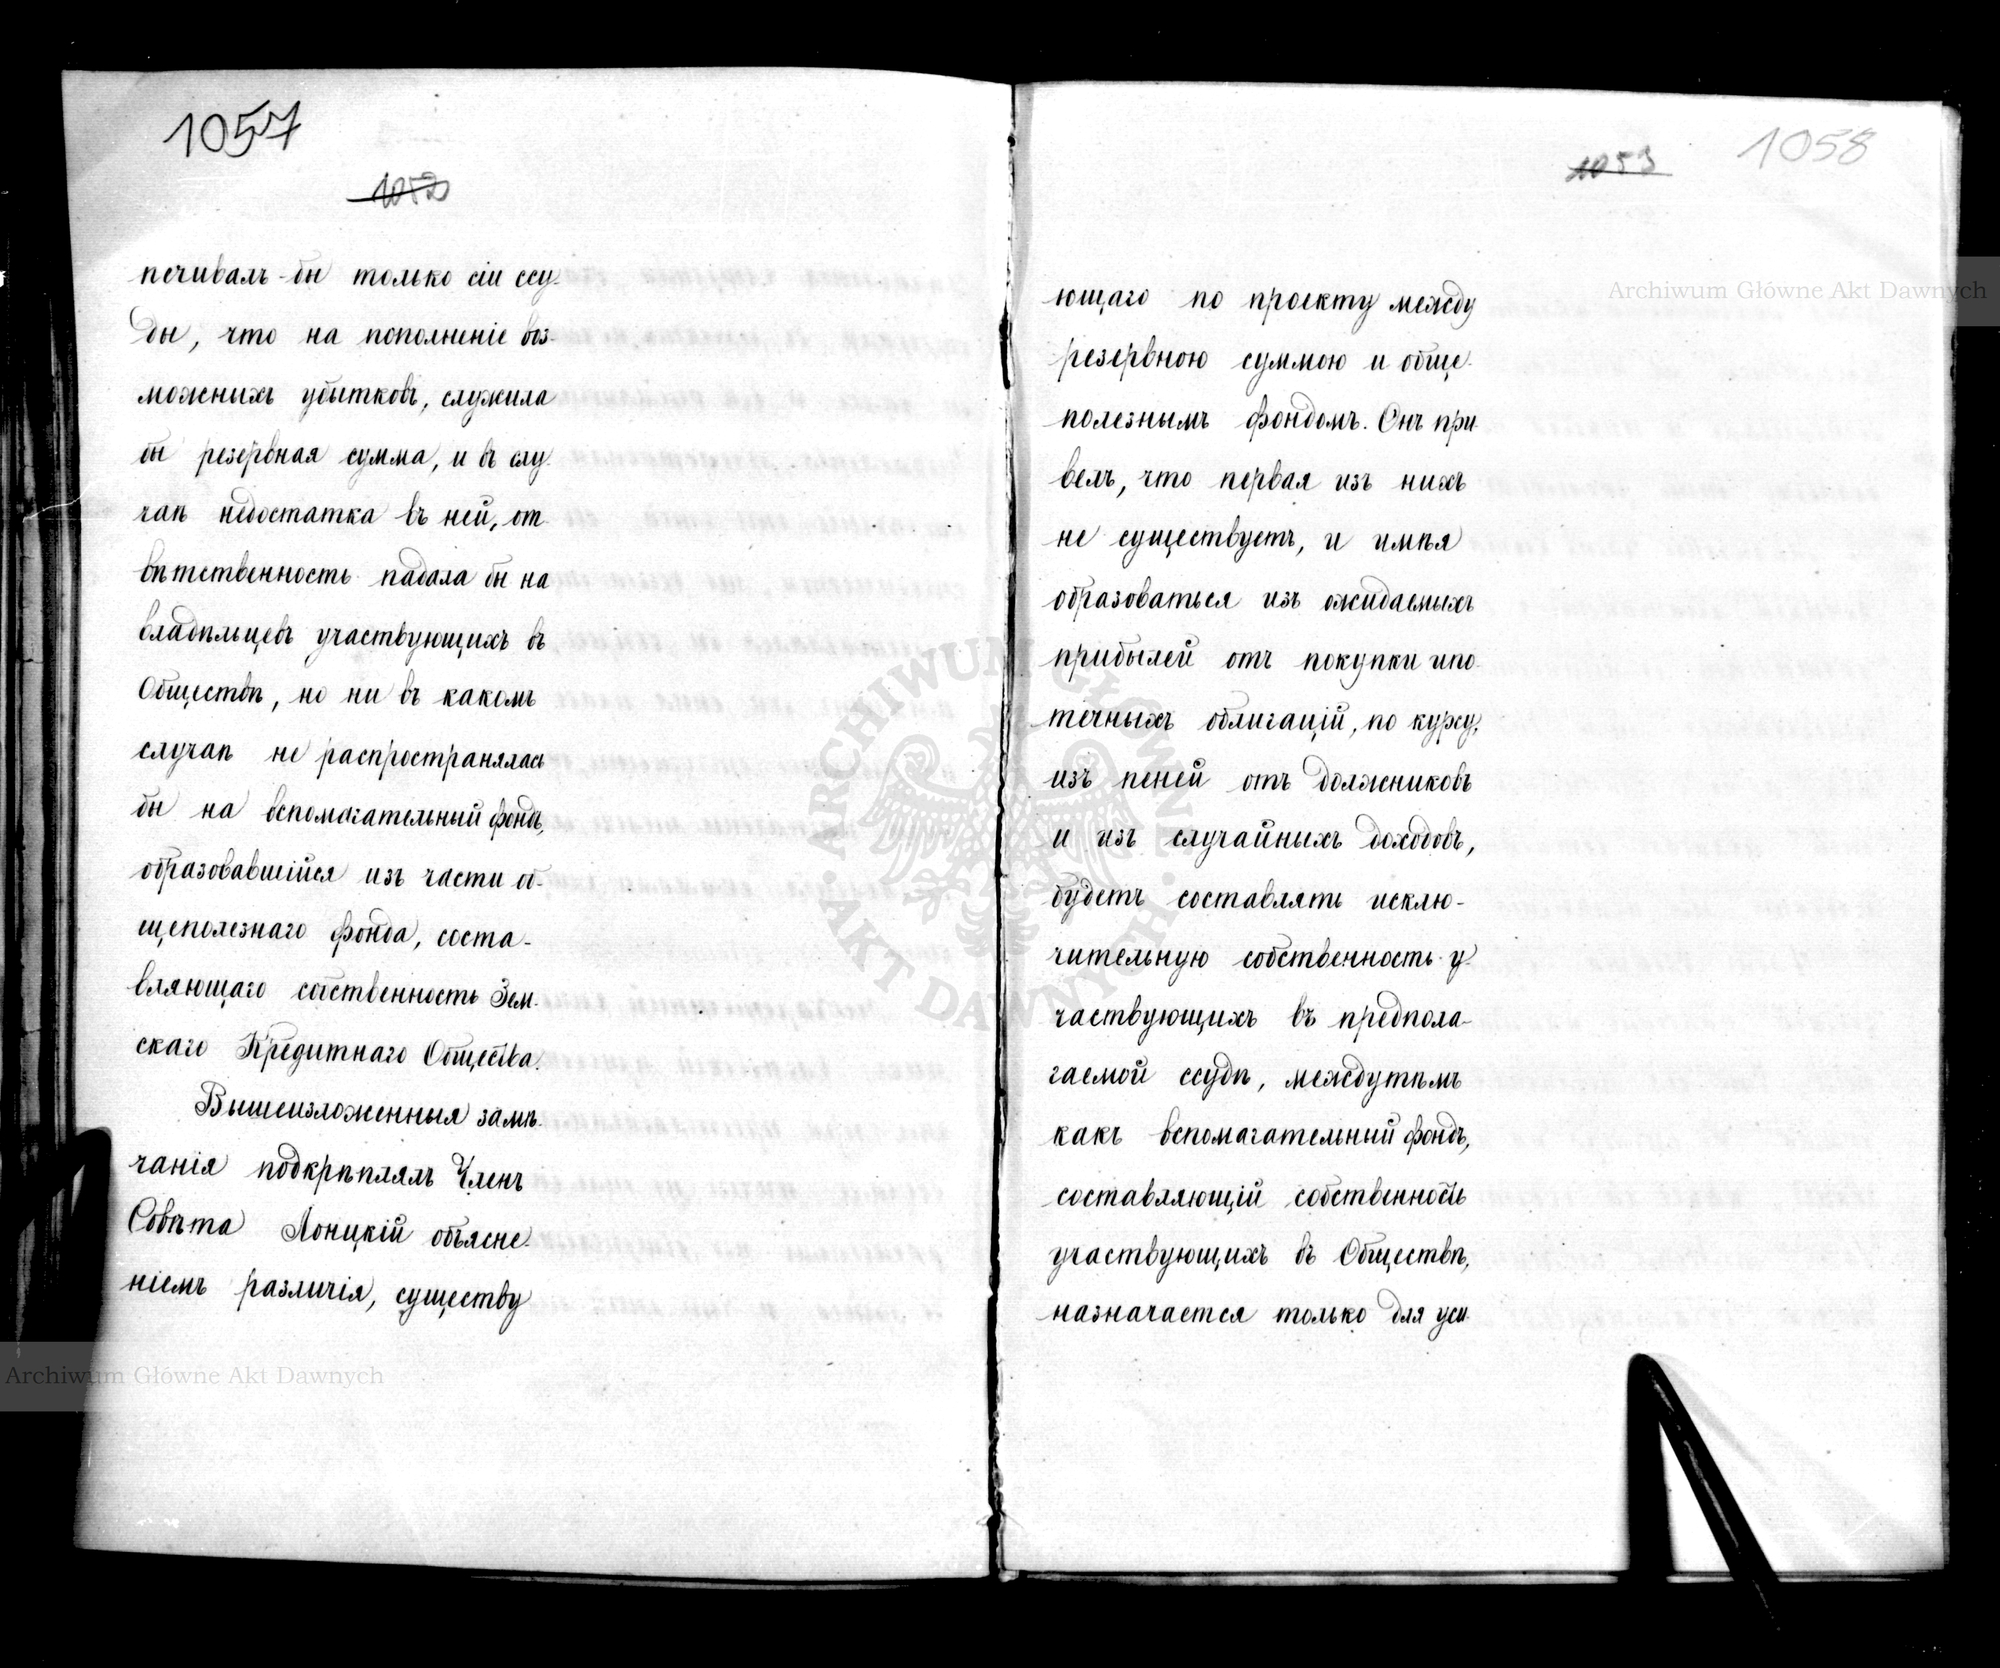 1057
1052
печивалъ-бы только сіи ссу-
ды, что на пополненіе воз-
можныхъ убытковъ, служила
бы резервная сумма, и въ слу-
чаѣ недостатка въ ней, от-
вѣтственность падала бы на
владѣльцевъ участвующихъ въ
Обществѣ, но ни въ какомъ
случаѣ не распространялась
бы на вспомагательный фондъ,
образовавшійся изъ части об-
щеполезнаго фонда, соста-
вляющаго собственность Зем-
скаго Кредитнаго Общества.
Вышеизложенныя замѣ-
чанія подкрѣплялъ Членъ
Совѣта Лонцкій объясне-
ніемъ различія, существу
1058
1053
ющаго по проекту между
резервною суммою и обще-
полезнымъ фондомъ. Онъ при-
велъ, что первая изъ нихъ
не существуетъ, и имѣя
образоваться изъ ожидаемыхъ
прибылей отъ покупки ипо-
течныхъ облигацій, по курсу,
изъ пеней отъ должниковъ
и изъ случайныхъ доходовъ,
будетъ составлять исклю-
чительную собственность у-
частвующихъ въ предпола-
гаемой ссудѣ, междутѣмъ
какъ вспомагательный фондъ,
составляющій собственность
участвующихъ въ Обществѣ,
назначается только для уси-
Archiwum Główne Akt Dawnych
Archiwum Główne Akt Dawnych
ARCHIWUM GŁÓWNE · AKT DAWNYCH ·